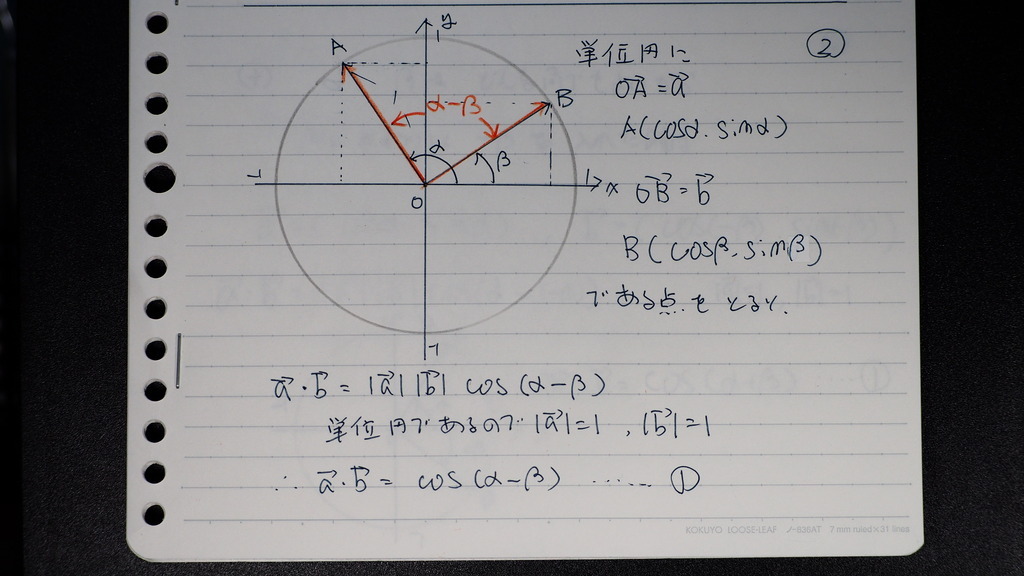 ②
y
1
A
単位円に
OA→ = a→
1
α-β
B
A(cosα, sinα)
α
β
-1
1
x
OB→ = b→
O
B(cosβ, sinβ)
である点をとると、
-1
a→・b→ = |a→| |b→| cos(α-β)
単位円であるので |a→|=1 , |b→|=1
∴ a→・b→ = cos(α-β) ...... ①
KOKUYO LOOSE-LEAF ノ-836AT 7 mm ruled×31 lines